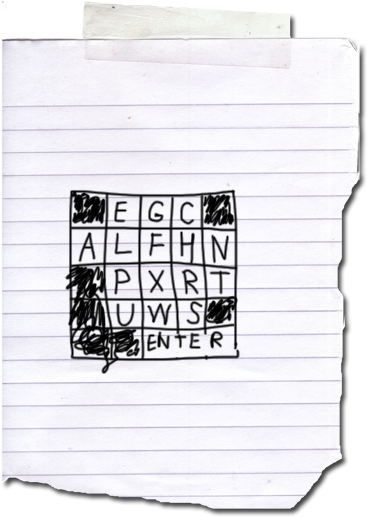 E G C
A L F H N
P X R T
U W S
ENTER